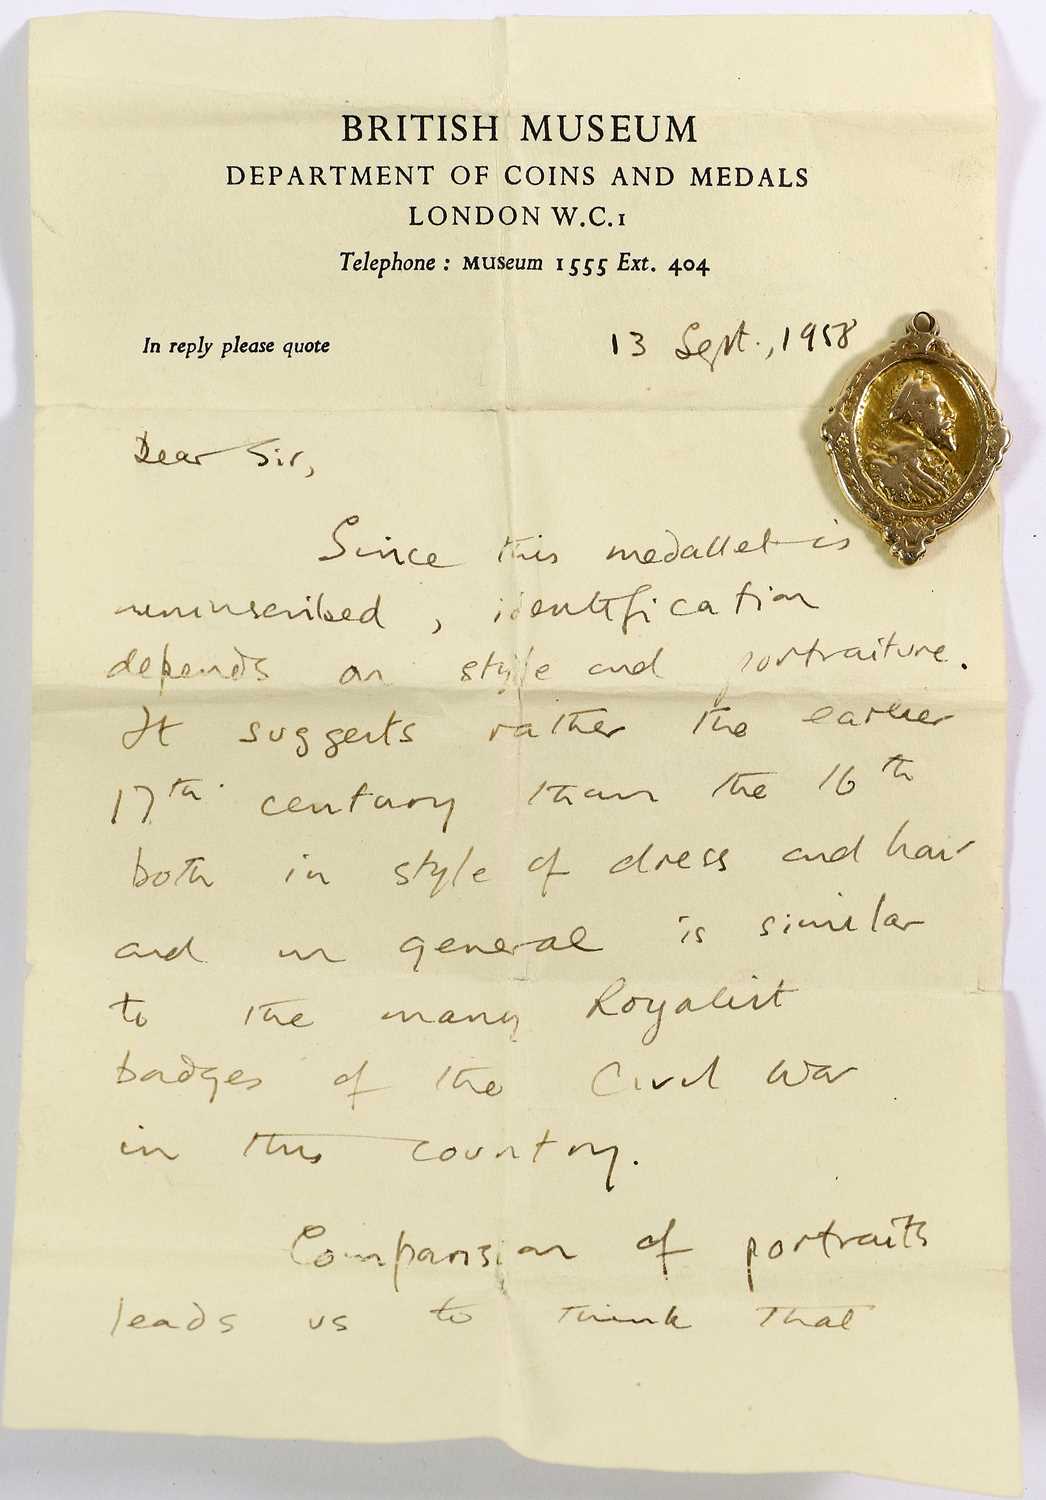 BRITISH MUSEUM
DEPARTMENT OF COINS AND MEDALS
LONDON W.C.1
Telephone : MUSeum 1555 Ext. 404
In reply please quote
13 Sept., 1958
Dear Sir,
Since this medallet is
uninscribed, identification
depends on style and portraiture.
It suggests rather the earlier
17th century than the 16th
both in style of dress and hair
and in general is similar
to the many Royalist
badges of the Civil War
in this country.
Comparison of portraits
leads us to think that